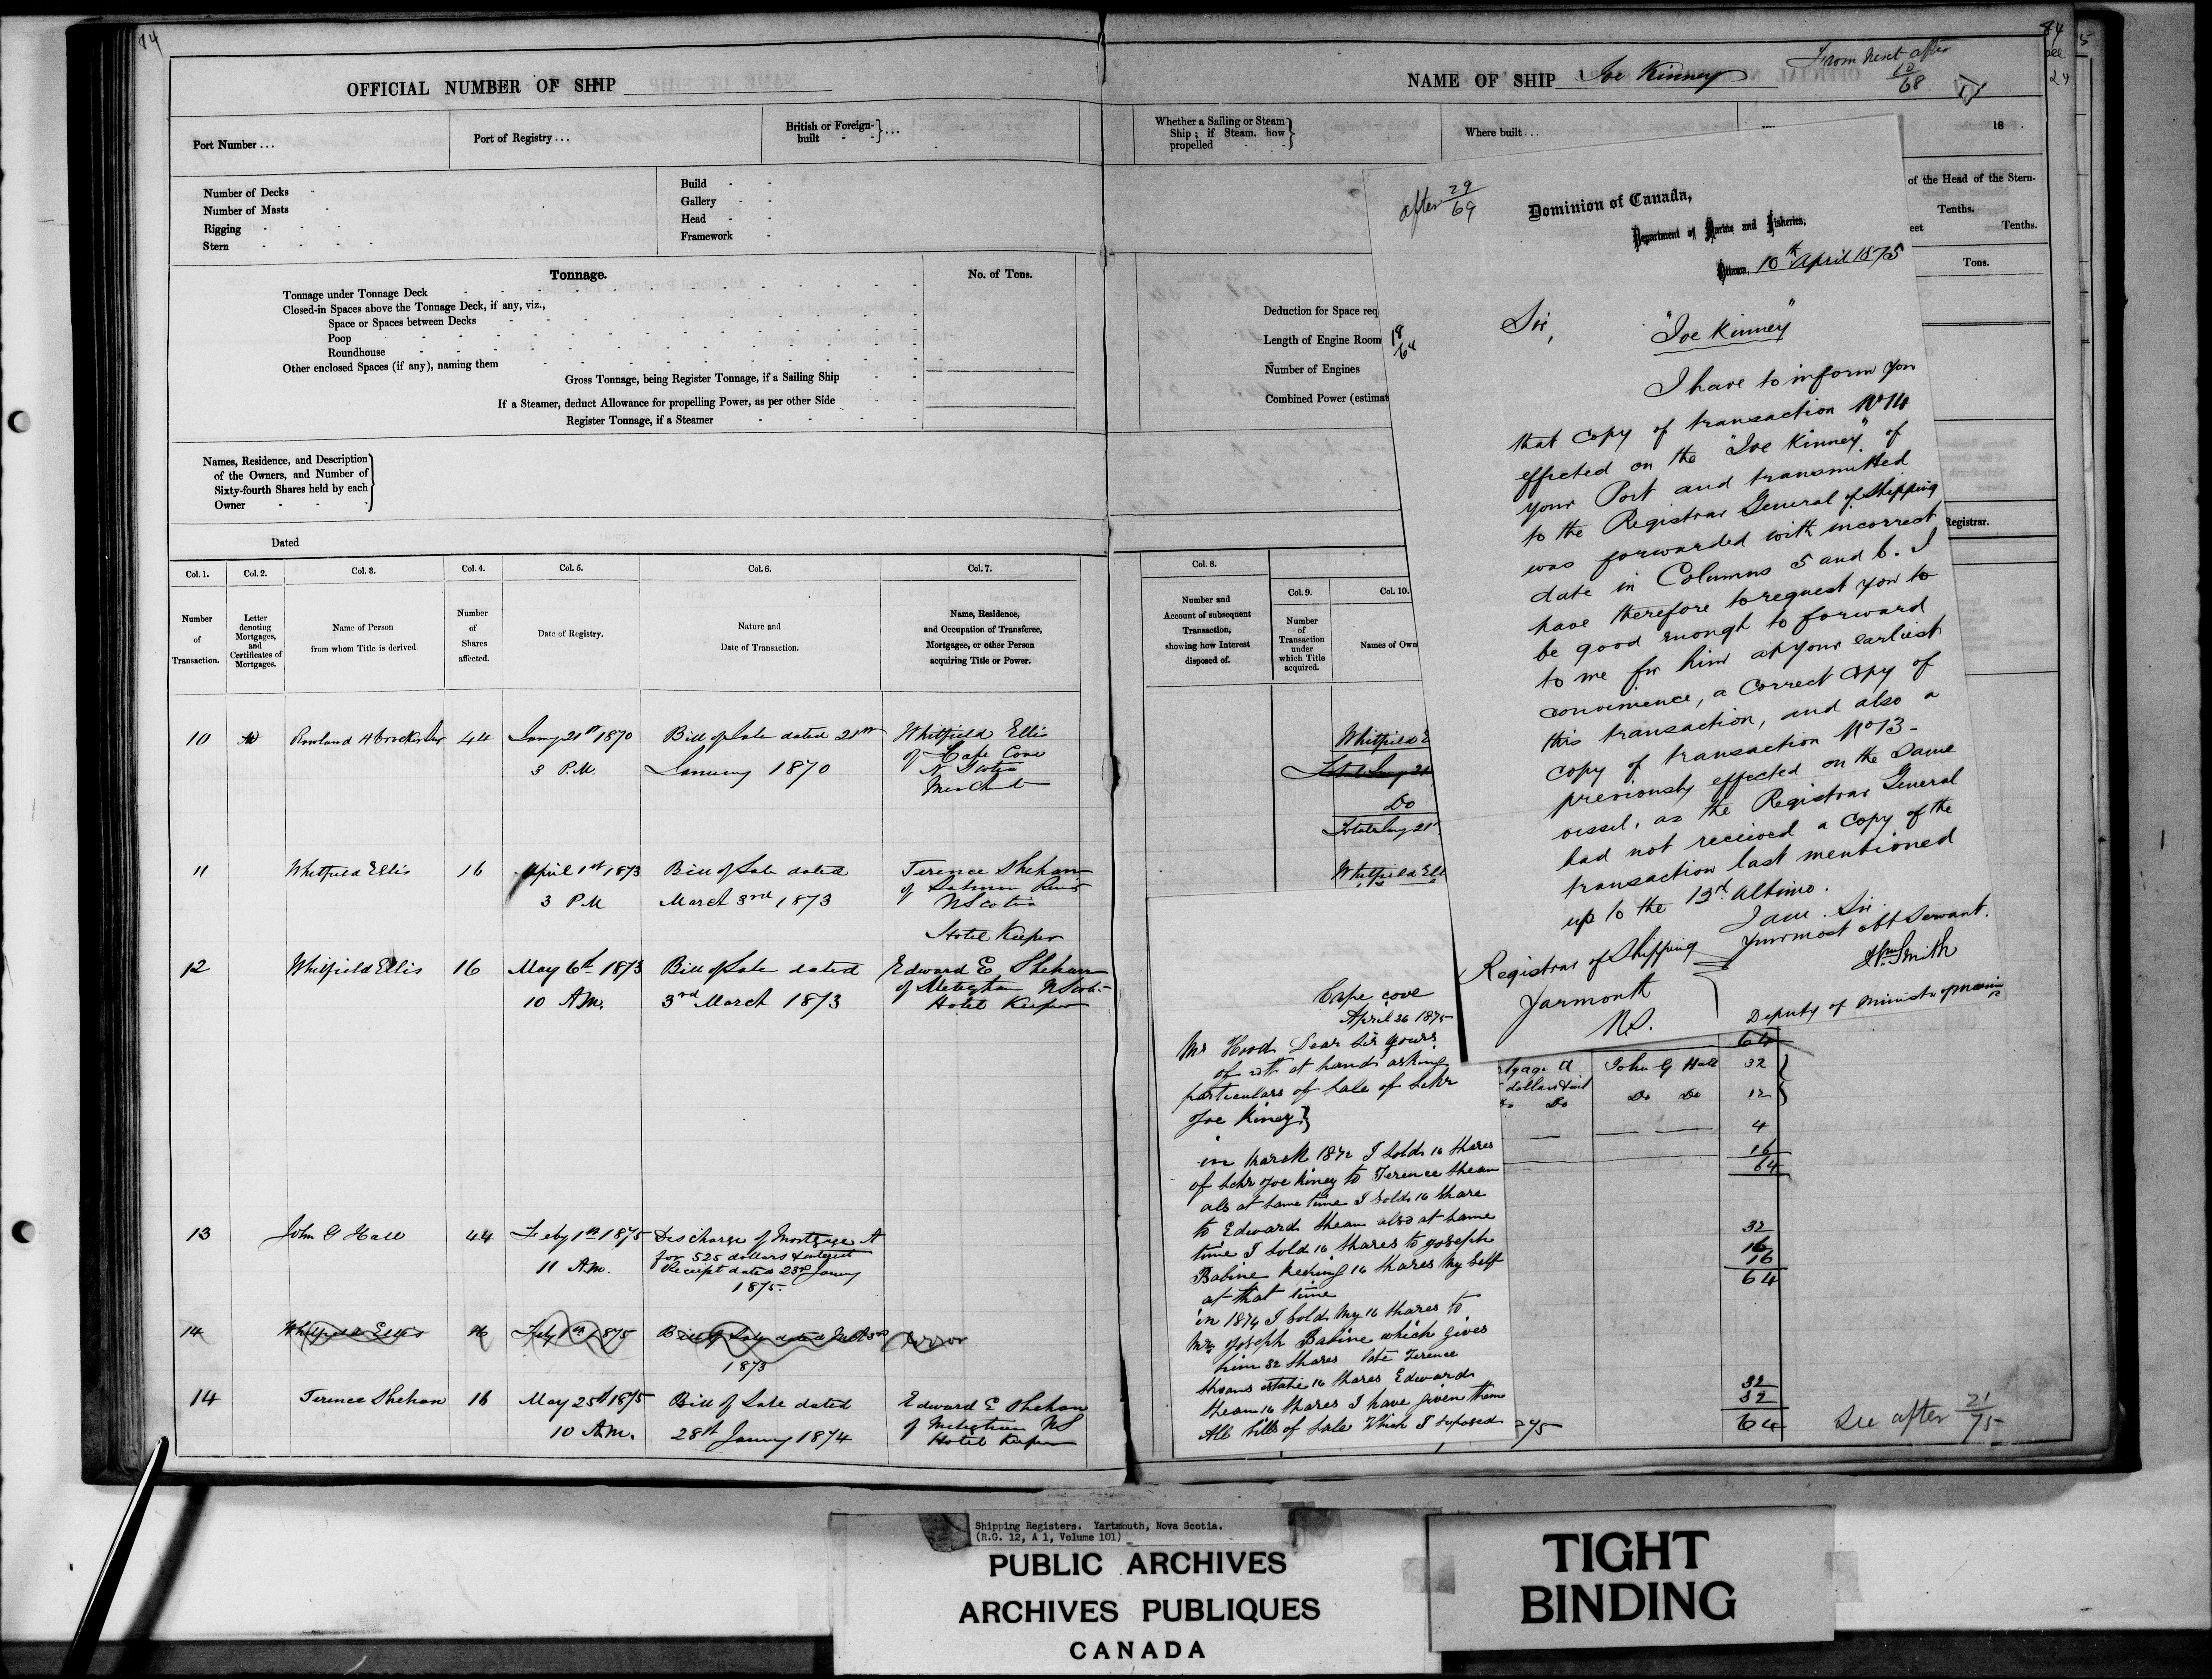 14
OFFICIAL NUMBER OF SHIP
Port Number ...
Port of Registry ...
British or Foreign-built - - } ...
Number of Decks -
Number of Masts -
Rigging - - -
Stern - - - -
Build - -
Gallery - -
Head - -
Framework -
Tonnage.
No. of Tons.
Tonnage under Tonnage Deck
Closed-in Spaces above the Tonnage Deck, if any, viz.,
Space or Spaces between Decks
Poop
Roundhouse
Other enclosed Spaces (if any), naming them
Gross Tonnage, being Register Tonnage, if a Sailing Ship
If a Steamer, deduct Allowance for propelling Power, as per other Side
Register Tonnage, if a Steamer
Names, Residence, and Description
of the Owners, and Number of
Sixty-fourth Shares held by each
Owner - - -
Dated
Col. 1. Col. 2. Col. 3. Col. 4. Col. 5. Col. 6. Col. 7.
Number of Transaction.
Letter denoting Mortgages, and Certificates of Mortgages.
Name of Person from whom Title is derived
Number of Shares affected.
Date of Registry.
Nature and Date of Transaction.
Name, Residence, and Occupation of Transferee, Mortgagee, or other Person acquiring Title or Power.
10 Rowland H Crocker 44 Jany 21st 1870 Bill of Sale dated 21st Whitfield Ellis
3 P.M. January 1870 of Cape Cove
N Scotia
Merchant
11 Whitfield Ellis 16 April 1st 1873 Bill of Sale dated Terence Shehan
3 P.M March 3rd 1873 of Salmon River
NScotia
Hotel Keeper
12 Whitfield Ellis 16 May 6th 1873 Bill of Sale dated Edward E Shehan
10 A.M. 3rd March 1873 of Meteghan NScotia
Hotel Keeper
13 John G Hall 44 Feby 1st 1875 Discharge of Mortgage A
11 A.M. for 525 dollars & interest
Receipt dated 23rd January
1875.
14 Whitfield Ellis 16 Feby 1st 1875 Bill of Sale dated March 3rd Error
1873
14 Terence Shehan 16 May 25th 1875 Bill of Sale dated Edward E Shehan
10 A.M. 28th January 1874 of Meteghan NS
Hotel Keeper
NAME OF SHIP Joe Kinney
From next after
10
68
84
24
5
Whether a Sailing or Steam
Ship; if Steam, how
propelled
Where built ...
18
of the Head of the Stern-
Tenths.
eet Tenths.
Tons.
Deduction for Space req
Length of Engine Room
Number of Engines
Combined Power (estimat
Registrar.
Col. 8.
Number and
Account of subsequent
Transaction,
showing how Interest
disposed of.
Col. 9.
Number
of
Transaction
under
which Title
acquired.
Col. 10.
Names of Own
Whitfield E
Do
Whitfield Ell
after 29
69
18
64
Dominion of Canada,
Department of Marine and Fisheries,
Ottawa, 10th April 1875
Sir,
"Joe Kinney"
I have to inform you
that copy of transaction No 14
effected on the "Joe Kinney" of
your Port and transmitted
to the Registrar General of Shipping
was forwarded with incorrect
date in Columns 5 and 6. I
have therefore to request you to
be good enough to forward
to me for him at your earliest
convenience, a correct copy of
this transaction, and also a
copy of transaction No 13 -
previously effected on the same
vessel, as the Registrar General
had not received a copy of the
transaction last mentioned
up to the 13rd ultimo.
I am Sir
Your most obt Servant.
Wm Smith
Deputy of Minister of Marine
Registrar of Shipping
Yarmouth
N.S.
Cape cove
April 26 1875
Mr Hood Dear Sir yours
of at hand asking
particulars of Sale of Schr
Joe Kiney}
in March 1872 I Sold 16 Shares
of Schr Joe Kiney to Terence Shean
als at Same time I Sold 16 Share
to Edward Shean also at Same
time I Sold 16 Shares to Joseph
Babine keeping 16 Shares My Self
at that time
in 1874 I Sold My 16 Shares to
Mr Joseph Babine which gives
him 32 Shares late Terence
Sheans estate 16 Shares Edward
Shean 16 Shares I have given them
All bills of Sale Which I Suposed
64
rtgage A John G Hall 32
dollars & int
Do Do Do 12
4
16
64
32
16
16
64
32
32
64
75
See after 21
75
Shipping Registers. Yartmouth, Nova Scotia.
(R.G. 12, A 1, Volume 101)
PUBLIC ARCHIVES
ARCHIVES PUBLIQUES
CANADA
TIGHT
BINDING